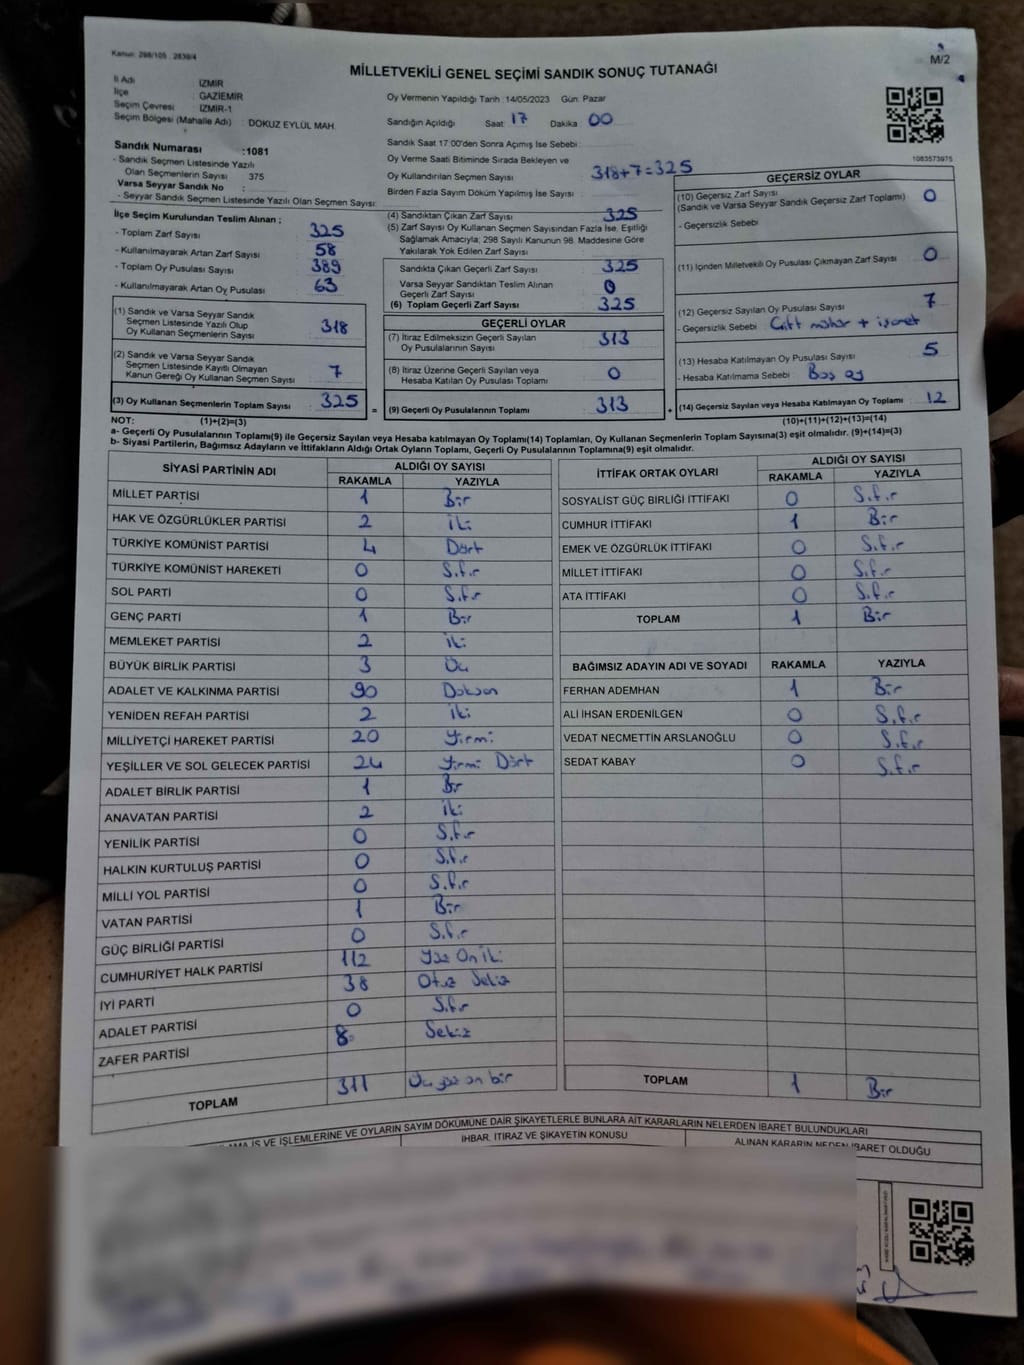 Kanun: 298/105 . 2839/4
M/2
MİLLETVEKİLİ GENEL SEÇİMİ SANDIK SONUÇ TUTANAĞI
İl Adı İZMİR
İlçe GAZİEMİR
Seçim Çevresi İZMİR-1
Seçim Bölgesi (Mahalle Adı) : DOKUZ EYLÜL MAH.
Oy Vermenin Yapıldığı Tarih : 14/05/2023 Gün: Pazar
Sandığın Açıldığı Saat 17 Dakika 00
Sandık Saat 17:00'den Sonra Açımış İse Sebebi :
Oy Verme Saati Bitiminde Sırada Bekleyen ve
Oy Kullandırılan Seçmen Sayısı 318+7=325
Birden Fazla Sayım Döküm Yapılmış İse Sayısı :
1083573975
Sandık Numarası :1081
- Sandık Seçmen Listesinde Yazılı
Olan Seçmenlerin Sayısı 375
Varsa Seyyar Sandık No :
- Seyyar Sandık Seçmen Listesinde Yazılı Olan Seçmen Sayısı:
İlçe Seçim Kurulundan Teslim Alınan :
- Toplam Zarf Sayısı 325
- Kullanılmayarak Artan Zarf Sayısı 58
- Toplam Oy Pusulası Sayısı 389
- Kullanılmayarak Artan Oy Pusulası 63
(1) Sandık ve Varsa Seyyar Sandık
Seçmen Listesinde Yazılı Olup
Oy Kullanan Seçmenlerin Sayısı 318
(2) Sandık ve Varsa Seyyar Sandık
Seçmen Listesinde Kayıtlı Olmayan
Kanun Gereği Oy Kullanan Seçmen Sayısı 7
(3) Oy Kullanan Seçmenlerin Toplam Sayısı 325 =
(4) Sandıktan Çıkan Zarf Sayısı 325
(5) Zarf Sayısı Oy Kullanan Seçmen Sayısından Fazla İse, Eşitliği
Sağlamak Amacıyla; 298 Sayılı Kanunun 98. Maddesine Göre
Yakılarak Yok Edilen Zarf Sayısı
Sandıkta Çıkan Geçerli Zarf Sayısı 325
Varsa Seyyar Sandıktan Teslim Alınan
Geçerli Zarf Sayısı 0
(6) Toplam Geçerli Zarf Sayısı 325
GEÇERLİ OYLAR
(7) İtiraz Edilmeksizin Geçerli Sayılan
Oy Pusulalarının Sayısı 313
(8) İtiraz Üzerine Geçerli Sayılan veya
Hesaba Katılan Oy Pusulası Toplamı 0
(9) Geçerli Oy Pusulalarının Toplamı 313 +
GEÇERSİZ OYLAR
(10) Geçersiz Zarf Sayısı
(Sandık ve Varsa Seyyar Sandık Geçersiz Zarf Toplamı) 0
- Geçersizlik Sebebi
(11) İçinden Milletvekili Oy Pusulası Çıkmayan Zarf Sayısı 0
(12) Geçersiz Sayılan Oy Pusulası Sayısı 7
- Geçersizlik Sebebi Çift mühür + işaret
(13) Hesaba Katılmayan Oy Pusulası Sayısı 5
- Hesaba Katılmama Sebebi Boş oy
(14) Geçersiz Sayılan veya Hesaba Katılmayan Oy Toplamı 12
NOT: (1)+(2)=(3) (10)+(11)+(12)+(13)=(14)
a- Geçerli Oy Pusulalarının Toplamı(9) ile Geçersiz Sayılan veya Hesaba katılmayan Oy Toplamı(14) Toplamları, Oy Kullanan Seçmenlerin Toplam Sayısına(3) eşit olmalıdır. (9)+(14)=(3)
b- Siyasi Partilerin, Bağımsız Adayların ve İttifakların Aldığı Ortak Oyların Toplamı, Geçerli Oy Pusulalarının Toplamına(9) eşit olmalıdır.
SİYASİ PARTİNİN ADI ALDIĞI OY SAYISI
RAKAMLA YAZIYLA
MİLLET PARTİSİ 1 Bir
HAK VE ÖZGÜRLÜKLER PARTİSİ 2 iki
TÜRKİYE KOMÜNİST PARTİSİ 4 Dört
TÜRKİYE KOMÜNİST HAREKETİ 0 Sıfır
SOL PARTİ 0 Sıfır
GENÇ PARTİ 1 Bir
MEMLEKET PARTİSİ 2 iki
BÜYÜK BİRLİK PARTİSİ 3 Üç
ADALET VE KALKINMA PARTİSİ 90 Doksan
YENİDEN REFAH PARTİSİ 2 iki
MİLLİYETÇİ HAREKET PARTİSİ 20 Yirmi
YEŞİLLER VE SOL GELECEK PARTİSİ 24 Yirmi Dört
ADALET BİRLİK PARTİSİ 1 Bir
ANAVATAN PARTİSİ 2 iki
YENİLİK PARTİSİ 0 Sıfır
HALKIN KURTULUŞ PARTİSİ 0 Sıfır
MİLLİ YOL PARTİSİ 0 Sıfır
VATAN PARTİSİ 1 Bir
GÜÇ BİRLİĞİ PARTİSİ 0 Sıfır
CUMHURİYET HALK PARTİSİ 112 Yüz On iki
İYİ PARTİ 38 Otuz Sekiz
ADALET PARTİSİ 0 Sıfır
ZAFER PARTİSİ 8 Sekiz
TOPLAM 311 Üç yüz on bir
İTTİFAK ORTAK OYLARI ALDIĞI OY SAYISI
RAKAMLA YAZIYLA
SOSYALİST GÜÇ BİRLİĞİ İTTİFAKI 0 Sıfır
CUMHUR İTTİFAKI 1 Bir
EMEK VE ÖZGÜRLÜK İTTİFAKI 0 Sıfır
MİLLET İTTİFAKI 0 Sıfır
ATA İTTİFAKI 0 Sıfır
TOPLAM 1 Bir
BAĞIMSIZ ADAYIN ADI VE SOYADI RAKAMLA YAZIYLA
FERHAN ADEMHAN 1 Bir
ALİ İHSAN ERDENİLGEN 0 Sıfır
VEDAT NECMETTİN ARSLANOĞLU 0 Sıfır
SEDAT KABAY 0 Sıfır
TOPLAM 1 Bir
İŞ VE İŞLEMLERİNE VE OYLARIN SAYIM DÖKÜMÜNE DAİR ŞİKAYETLERLE BUNLARA AİT KARARLARIN NELERDEN İBARET BULUNDUKLARI
İHBAR, İTİRAZ VE ŞİKAYETİN KONUSU
ALINAN KARARIN NEDEN İBARET OLDUĞU